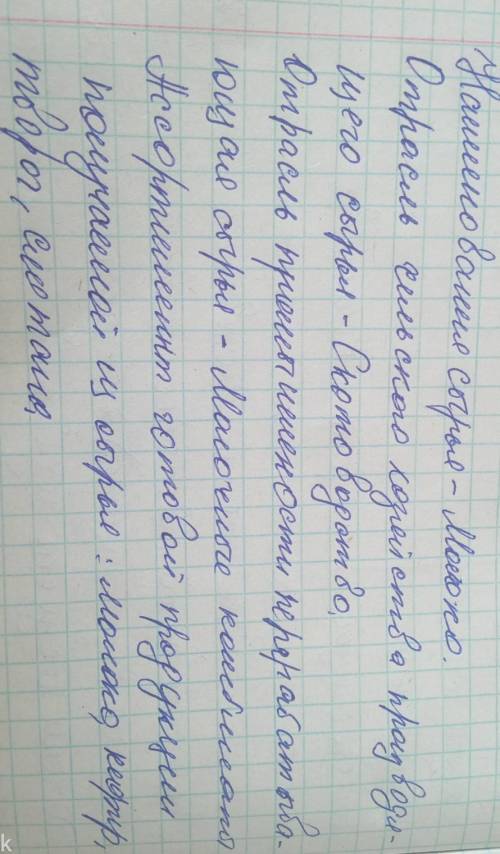 Наименование сырья - Молоко.
Отрасль сельского хозяйства производя-
щего сырья - Скотоводство,
Отрасль промышленности перерабатыва-
ющая сырья - Молочные комбинаты
Ассортимент готовой продукции
получаемой из сырья: молоко, кефир,
творог, сметана
k